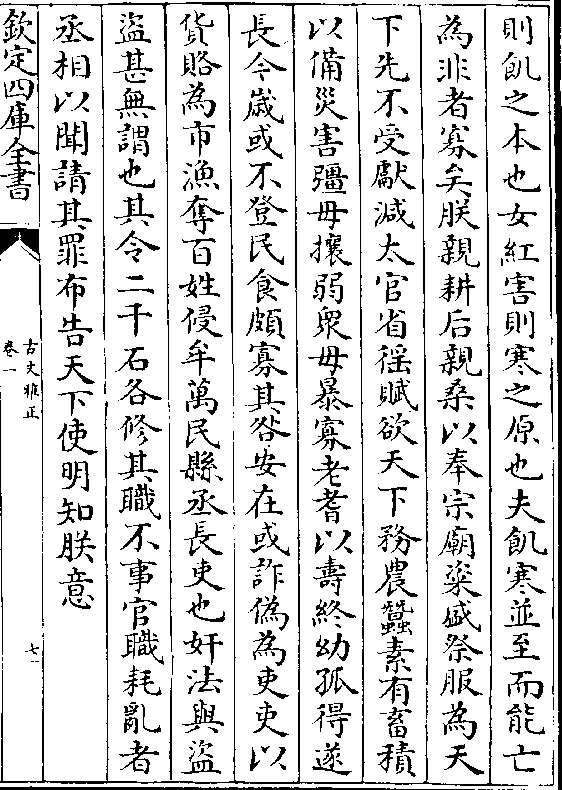 則飢之本也女紅害則寒之原也夫飢寒並至而能亡
為非者寡矣朕親耕后親桑以奉宗廟粢盛祭服為天
下先不受獻減太官省徭賦欲天下務農蠶素有畜積
以備災害彊毋攘弱眾毋暴寡老耆以壽終幼孤得遂
長今歲或不登民食頗寡其咎安在或詐偽為吏吏以
貨賂為市漁奪百姓侵牟萬民縣丞長吏也奸法與盜
盜甚無謂也其令二千石各修其職不事官職耗亂者
丞相以聞請其罪布告天下使明知朕意
欽定四庫全書
古文雅正
卷一
七